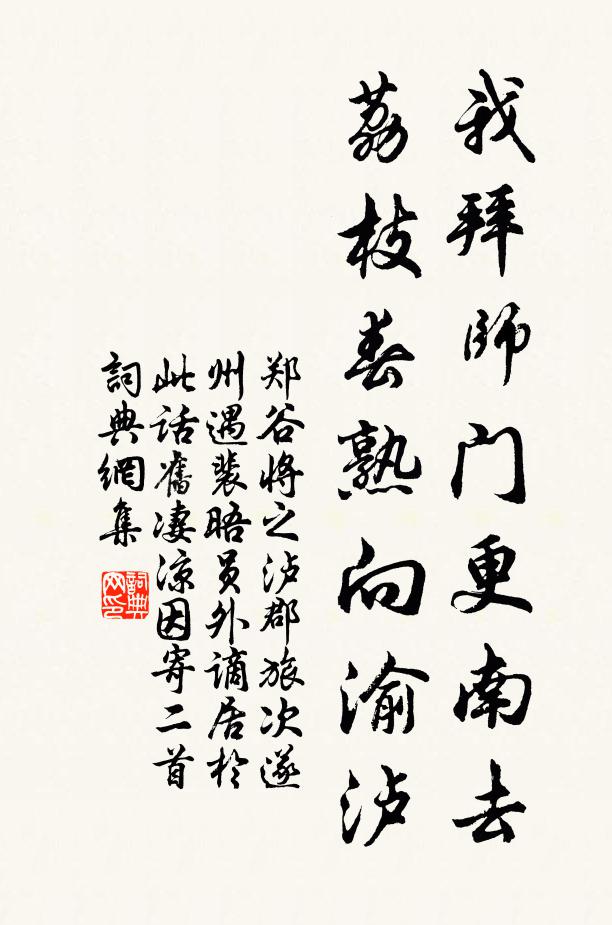 我拜師门更南去
荔枝春熟向渝泸
郑谷将之泸郡旅次遂
州遇裴晤员外谪居於
此话舊凄凉因寄二首
詞典網集
詞典网印